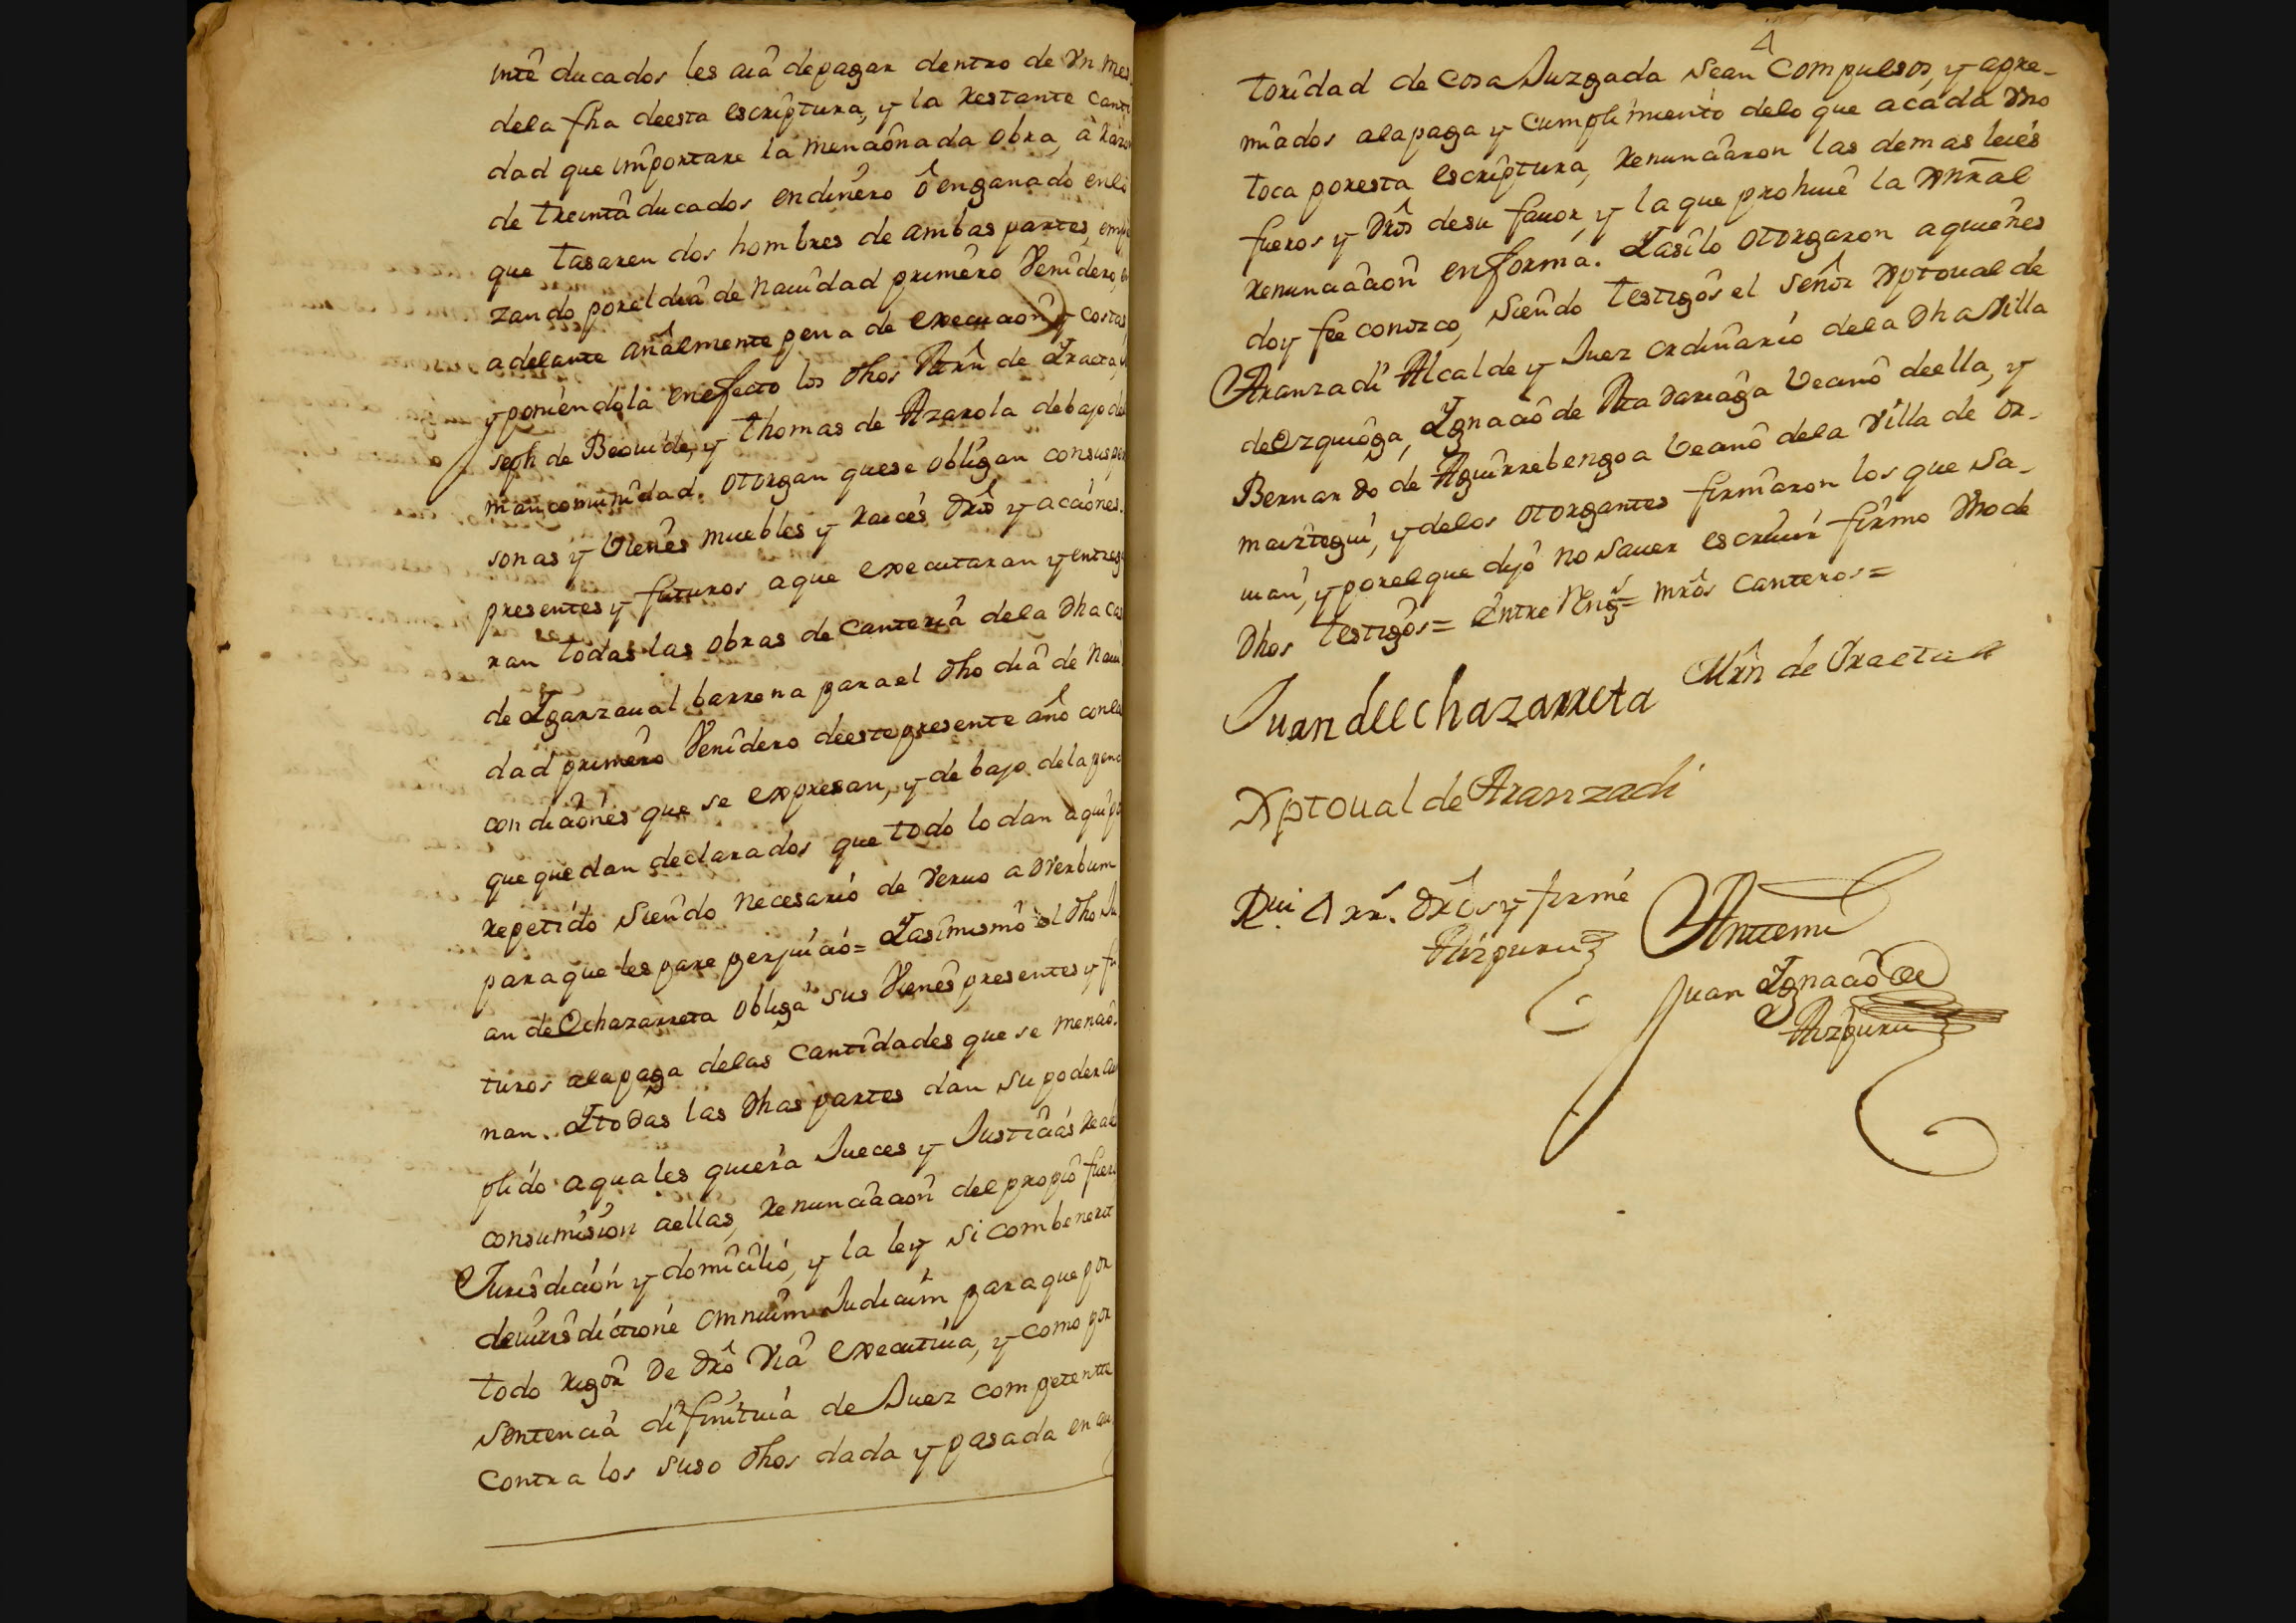 inte ducados les aiâ de pagar dentro de Vn mes
dela fha deesta escriptura, y la Restante Canti
dad que importare la menaonada obra, à Razo
de treinta ducados en dinero ô en ganado enlo
que tasaren dos hombres de ambas partes, empe
zando por el dia de Nauidad primero Venidero, en
adelante añalmente pena de execuaon y costas,
y poniendola en efecto los dhos Mrn de Yraeta,
seph de Beouide, y Thomas de Azarola debajo de
mancomunidad, otorgan que se obligan consus per
sonas y vienes muebles y Raices dros y acaones.
presentes y futuros a que executaran y entrega
ran todas las obras de Canteria dela dha cas
de Yganzaual barrena para el dho dia de Naui
dad primero Venidero deeste presente año con las
condiaones que se expresan, y de bajo dela pena
que quedan declarados que todo lo dan aqui po
Repetido siendo necesario de Veruo ad Verbum
para que les pare perjuiaó= Yasimismo el dho Ju
an de Echazarreta obliga sus Vienes presentes y fu
turos ala paga delas Cantidades que se menaô.
nan. Ytodas las dhas partes dan su poder cu
plido a quales quiera Jueces y Justiaas Reale
consumision aellas, Renunaaaon del propio fuero
Jurisdiaon y domialio, y la ley si combenerit
deiurisdictione omnium Judicum para que por
todo Rigor de dro Via executiua, y como por
sentenaa difinitiua de Juez competente
Contra los suso dhos dada y pasada en au
4
toridad de cosa Juzgada sean Compulsos, y apre-
miados ala paga y Cumplimiento delo que acada Vno
toca por esta escriptura, Renunaaron las demas leies
fueros y dros desu fauor, y la que prohiue la gnral
Renunaaaon en forma. Yasilo otorgaron aquienes
doy fee conozco, siendo testigos el señor Xptoual de
Aranzadi Alcalde y Juez ordinario dela dha Villa
de Ezquioga, Ygnaao de Madariaga Veano deella, y
Bernardo de Aguirrebengoa Veano dela Villa de Or-
maiztegui, y delos otorgantes firmaron los que sa-
uian, y por el que dijo no sauer escriuir firmo Vno de
dhos testigos= Entre Rengs= mros Canteros=
Juan de Echazarreta Mrn de Yraeta
Xptoual de Aranzadi
Rui 4 rrs. dros y firmé
Aizpuru
Antemi
Juan Ygnaao de
Aizpuru